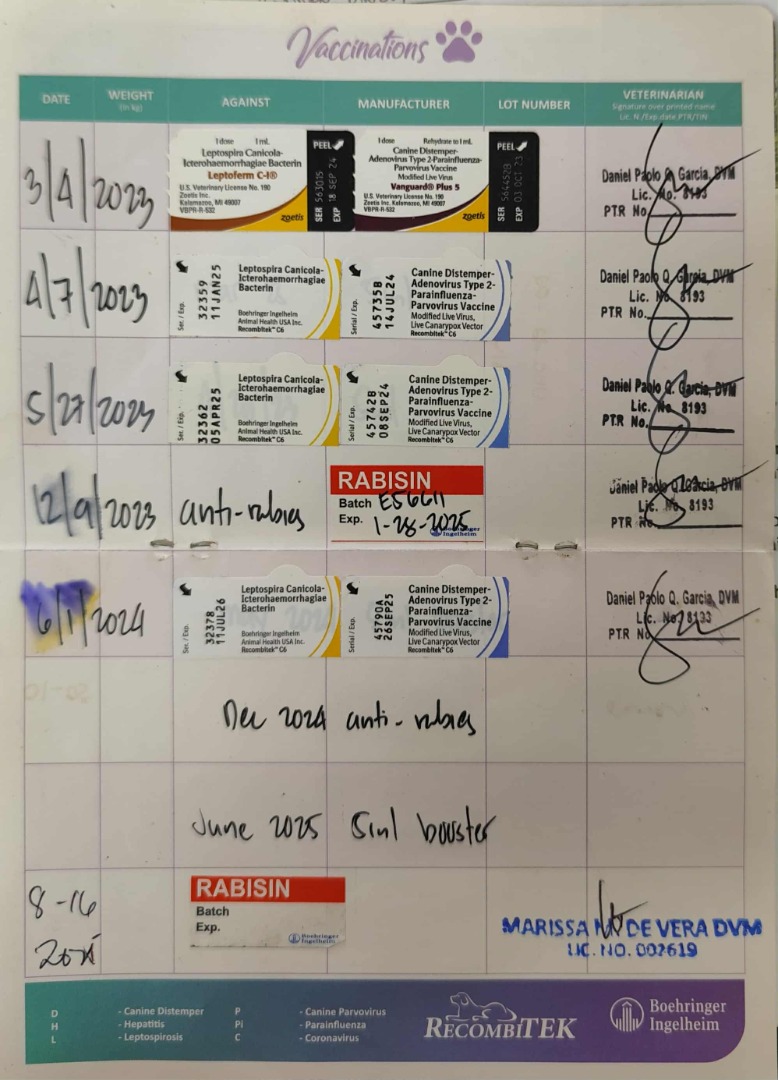 Vaccinations
DATE WEIGHT (in kg) AGAINST MANUFACTURER LOT NUMBER VETERINARIAN
Signature over printed name
Lic. N./Exp. date PTR/TIN
3/4/2023
1 dose 1 mL
Leptospira Canicola-
Icterohaemorrhagiae Bacterin
Leptoferm C-I®
U.S. Veterinary License No. 190
Zoetis Inc.
Kalamazoo, MI 49007
VBPR-R-532
zoetis
PEEL
SER 563015
EXP 18 SEP 24
1 dose Rehydrate to 1 mL
Canine Distemper-
Adenovirus Type 2-Parainfluenza-
Parvovirus Vaccine
Modified Live Virus
Vanguard® Plus 5
U.S. Veterinary License No. 190
Zoetis Inc. Kalamazoo, MI 49007
VBPR-R-532
zoetis
PEEL
SER
EXP 03 OCT 23
Daniel Paolo Q. Garcia, DVM
Lic. No. 8193
PTR No.
4/7/2023
Ser. / Exp.
32359
11JAN25
Leptospira Canicola-
Icterohaemorrhagiae
Bacterin
Boehringer Ingelheim
Animal Health USA Inc.
Recombitek® C6
Serial / Exp.
45735B
14JUL24
Canine Distemper-
Adenovirus Type 2-
Parainfluenza-
Parvovirus Vaccine
Modified Live Virus,
Live Canarypox Vector
Recombitek® C6
Daniel Paolo Q. Garcia, DVM
Lic. No. 8193
PTR No.
5/27/2023
Ser. / Exp.
32362
05APR25
Leptospira Canicola-
Icterohaemorrhagiae
Bacterin
Boehringer Ingelheim
Animal Health USA Inc.
Recombitek® C6
Serial / Exp.
45742B
08SEP24
Canine Distemper-
Adenovirus Type 2-
Parainfluenza-
Parvovirus Vaccine
Modified Live Virus,
Live Canarypox Vector
Recombitek® C6
Daniel Paolo Q. Garcia, DVM
Lic. No. 8193
PTR No.
12/9/2023 anti-rabies
RABISIN
Batch E56611
Exp. 1-28-2025
Boehringer Ingelheim
Daniel Paolo Q. Garcia, DVM
Lic. No. 8193
PTR No
6/1/2024
Ser. / Exp.
32378
11JUL26
Leptospira Canicola-
Icterohaemorrhagiae
Bacterin
Boehringer Ingelheim
Animal Health USA Inc.
Recombitek® C6
Serial / Exp.
45790A
26SEP25
Canine Distemper-
Adenovirus Type 2-
Parainfluenza-
Parvovirus Vaccine
Modified Live Virus,
Live Canarypox Vector
Recombitek® C6
Daniel Paolo Q. Garcia, DVM
Lic. No.
PTR No
Dec 2024 anti-rabies
June 2025 5in1 booster
8-16
RABISIN
Batch
Exp.
Boehringer Ingelheim
MARISSA DE VERA DVM
LIC. NO. 002619
D - Canine Distemper P - Canine Parvovirus
H - Hepatitis Pi - Parainfluenza
L - Leptospirosis C - Coronavirus
RECOMBITEK
Boehringer
Ingelheim